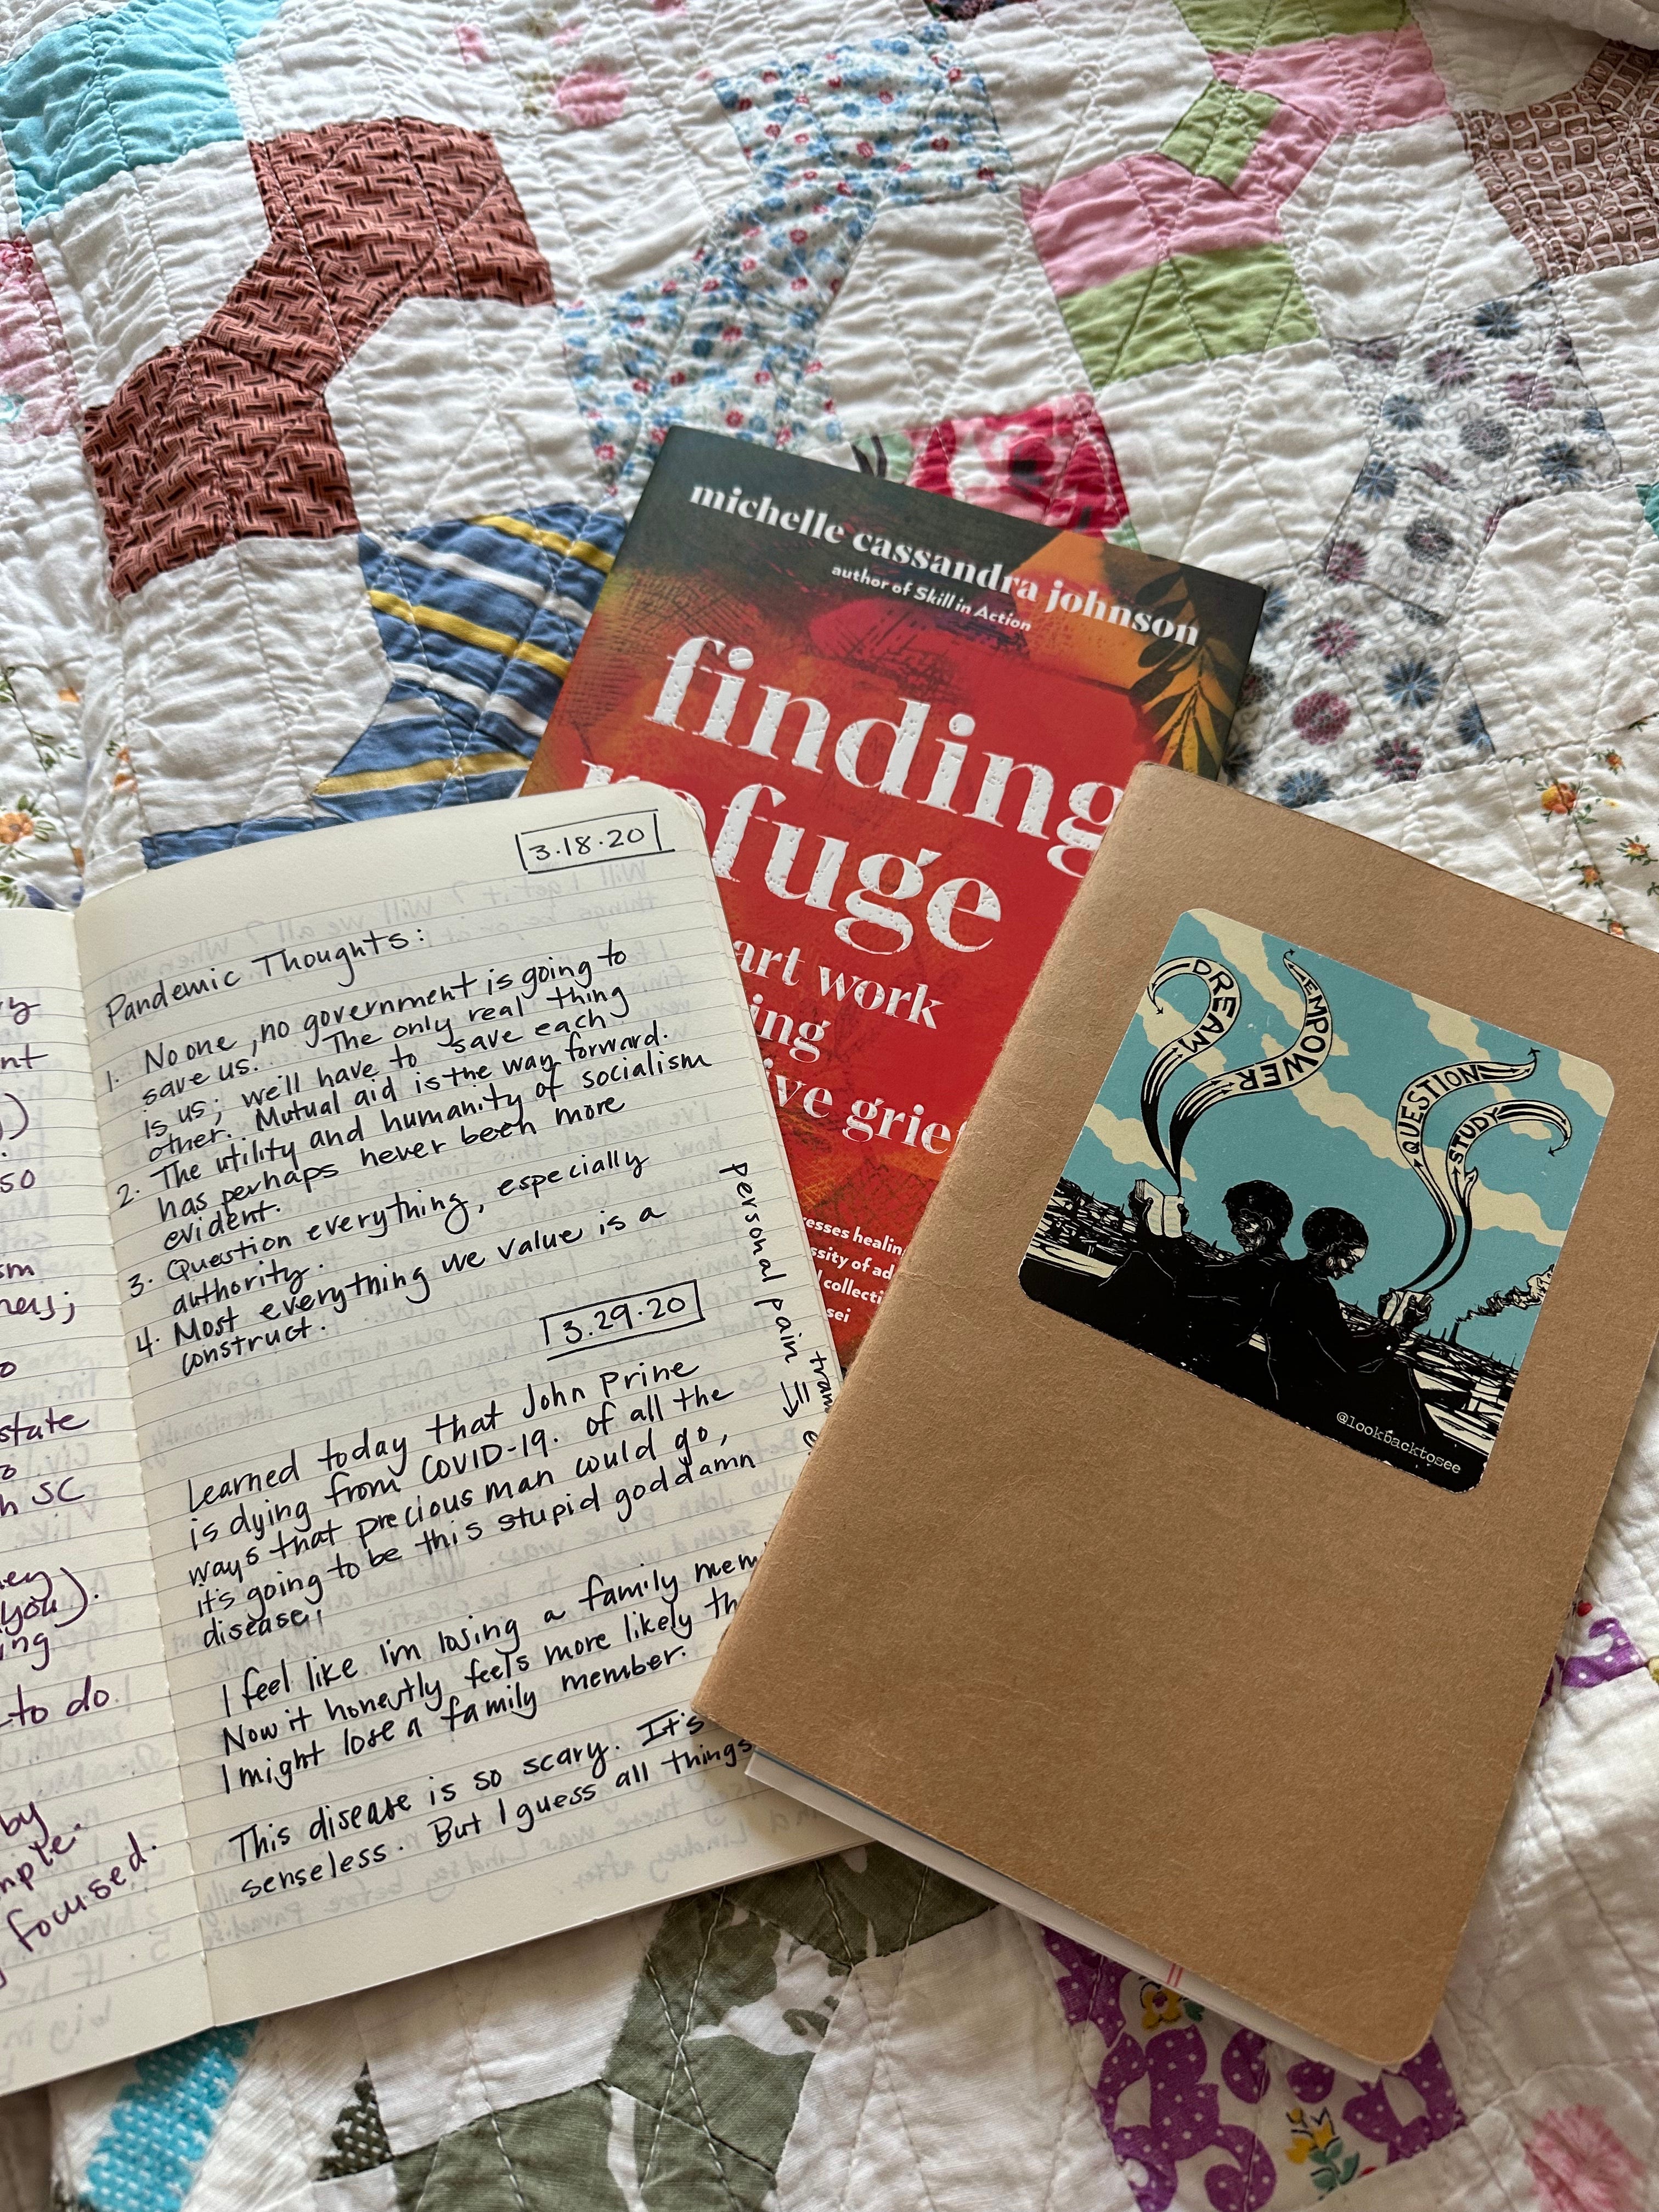 michelle cassandra johnson
author of Skill in Action
finding
refuge
art work
ing
ive grief
esses healin
ssity of ad
d collecti
sei
DREAM
EMPOWER
QUESTION
STUDY
@lookbacktosee
3.18.20
Pandemic Thoughts:
1. No one, no government is going to
save us... The only real thing
is us; we'll have to save each
other. Mutual aid is the way forward.
2. The utility and humanity of socialism
has perhaps never been more
evident.
3. Question everything, especially
authority.
4. Most everything we value is a
construct.
3.29.20
Learned today that John Prine
is dying from COVID-19. Of all the
ways that precious man could go,
it's going to be this stupid goddamn
disease!
I feel like I'm losing a family mem
Now it honestly feels more likely th
I might lose a family member.
This disease is so scary. It's
senseless. But I guess all things
personal pain
tran
ent
so
sm
state
h SC
ey
you).
ing
to do.
by
mple.
focused.